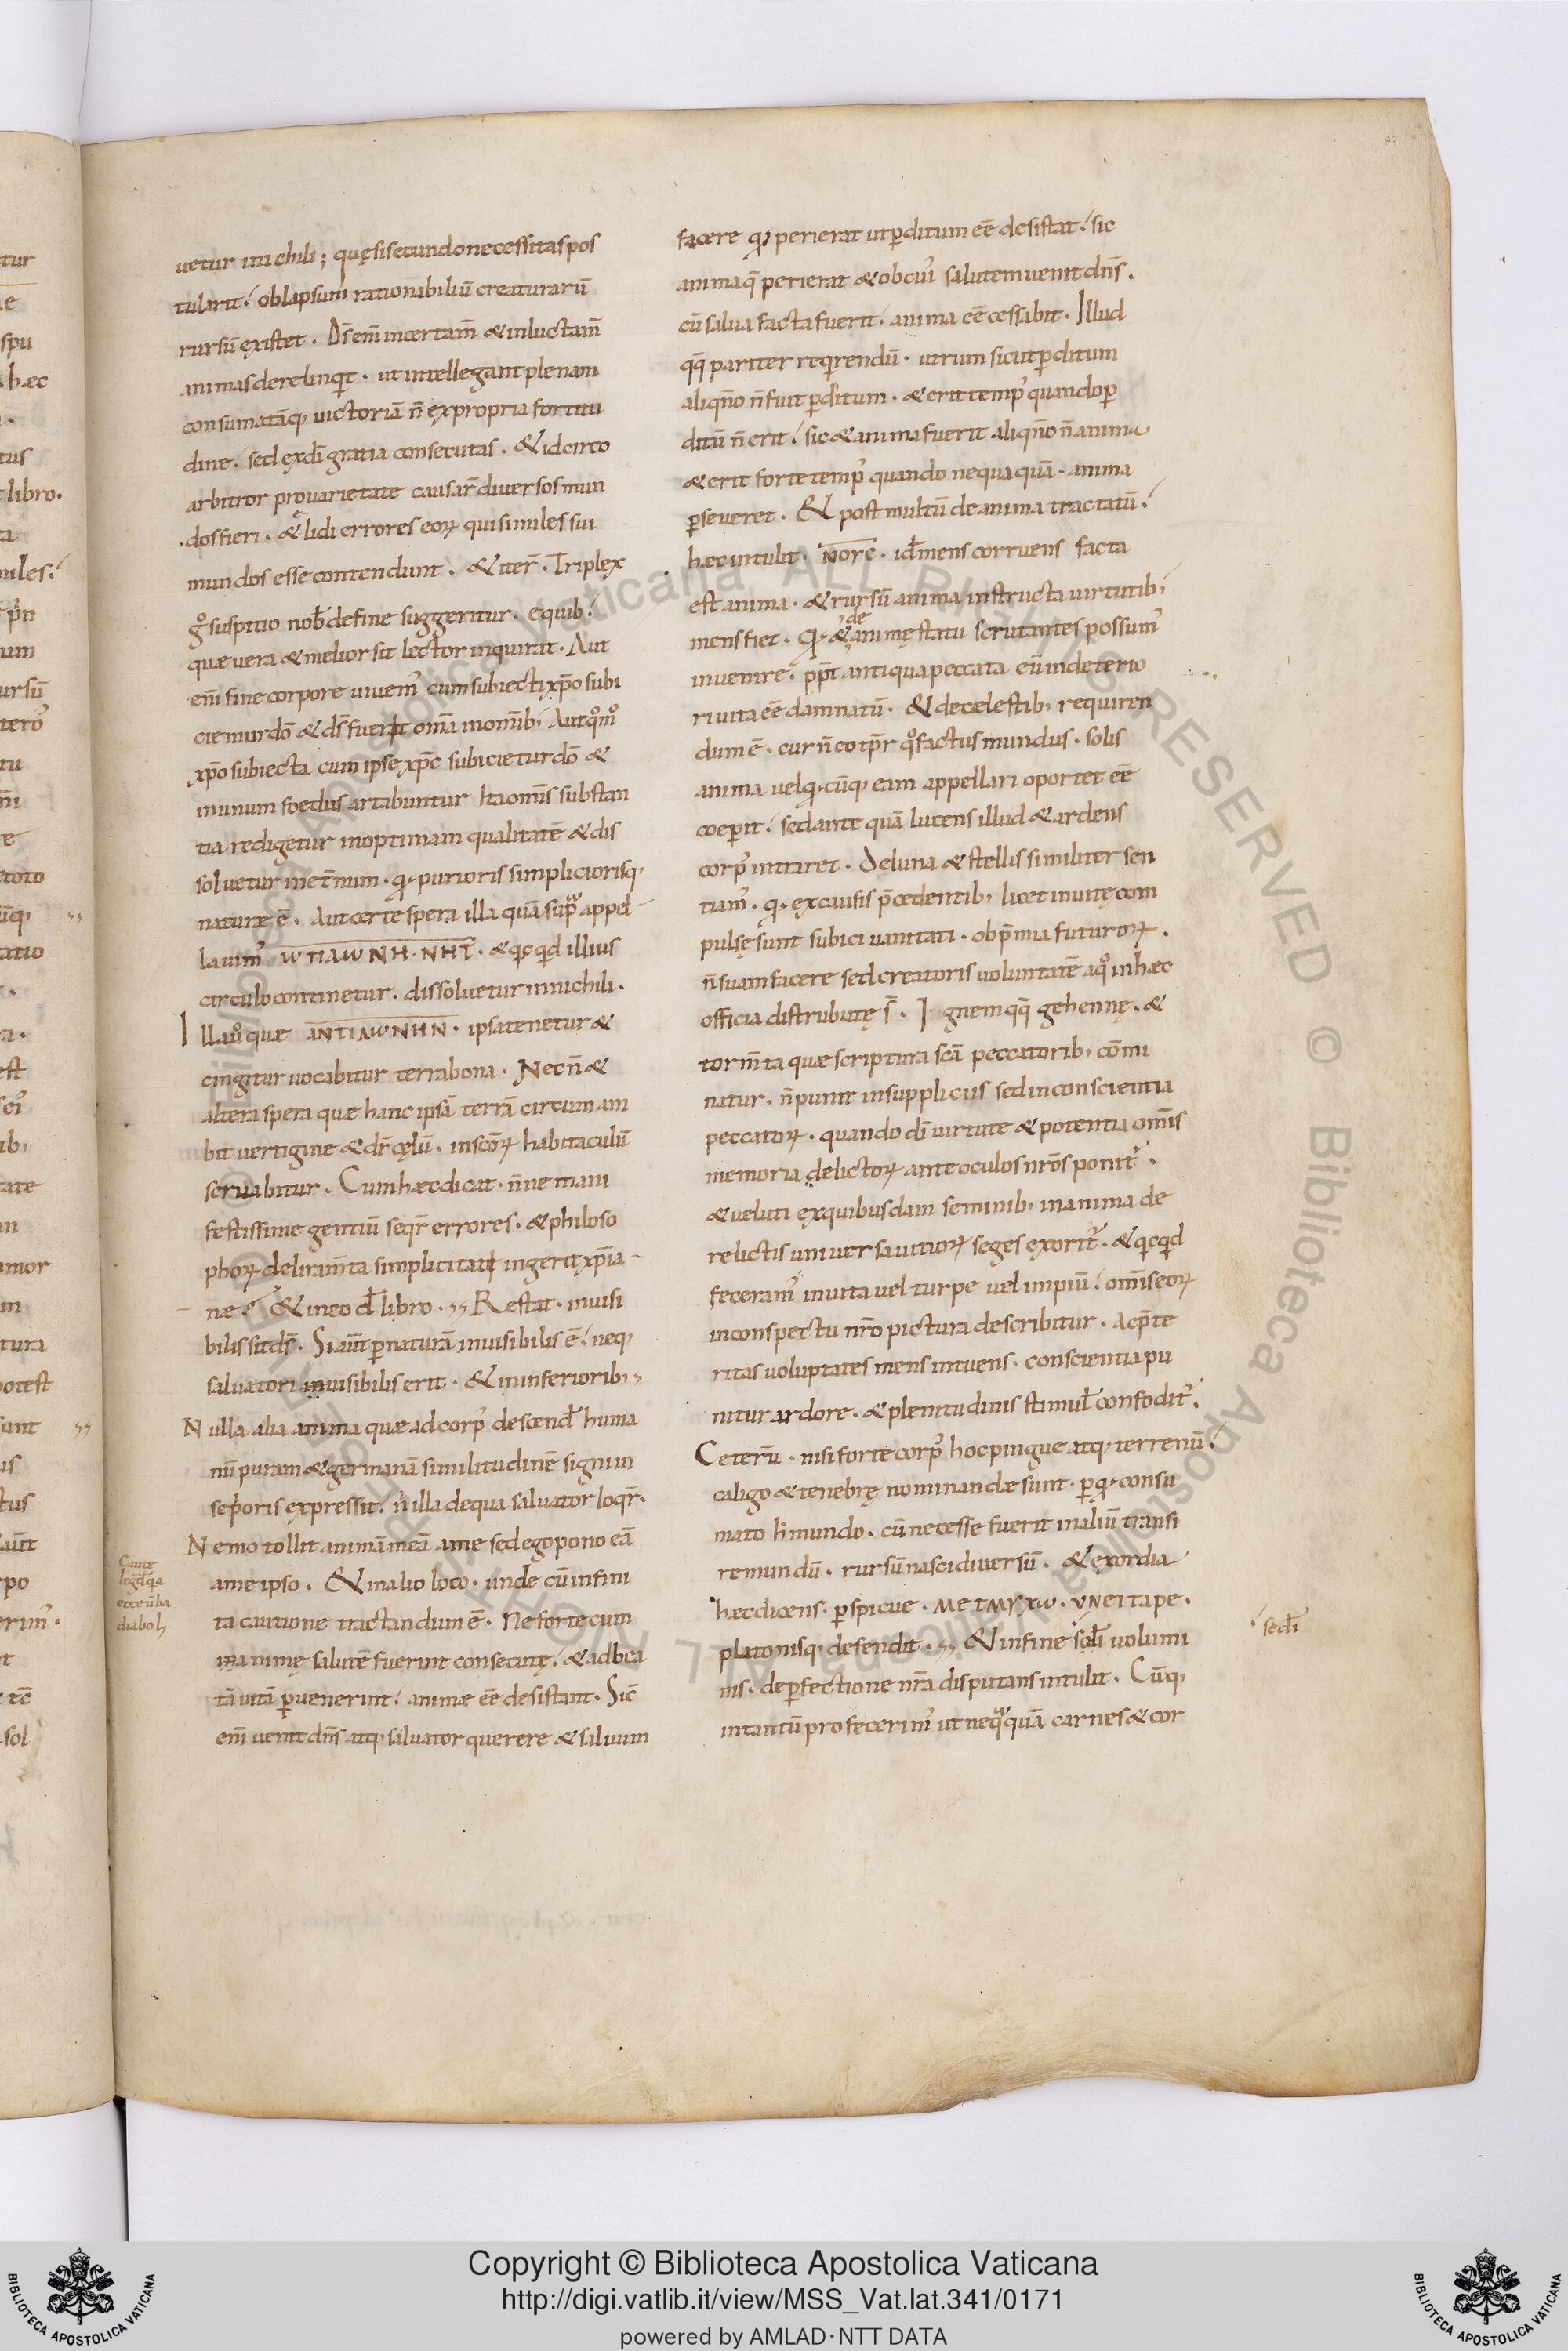 uetur in nichili; quę si secundo necessitas pos
tularit! ob lapsum rationabiliū creaturarū
rursū existet. Ds̄ eni͞m in certam̄ & in luctam̄
animas derelinqt. ut intellegant plenam
consumatāq, uictoriā n̄ ex propria fortitu
dine! sed ex dī gratia consecutas. & idcirco
arbitror pro uarietate causar̄ diuersos mun
dos fieri. & ęlidi errores eoꝝ qui similes sui
mundos esse contendunt. & iter̄. Triplex
gͦ suspitio nob̄ de fine suggeritur. e quib!
quæ uera & melior sit lector inquirat. Aut
eni͞m sine corpore uiuem᾽ cum subiecti xp̄o subi
ciemur dō & ds̄ fuerit om̄a in omīb; Aut qͦmͦ
xp̄o subiecta cum ipse xp̄c subicietur dō &
in unum foedus artabuntur Ita omīs substan
tia redigetur in optimam qualitatē & dis
soluetur in et̄num. q puriori s simpliciorisq,
naturæ ē. Aut certe spera illa quā supra appel
lauim᾽ ωπλωΝΗ·ΝΗΙ. & qcqd illius
circulo continetur. dissoluetur in nichili.
Illa uͦ quæ ΑΝΤΙΛωΝΗΝ. ipsa tenetur &
cingitur uocabitur terra bona. Necn̄ &
altera spera quæ hanc ipsā terrā circum am
bit uertigine & dr̄ cęlū. in scōꝝ habitaculū
seruabitur. Cum hæc dicat. n̄ne mani
festissime gentiū seqr̄ errores. & philoso
phoꝝ deliram̄ta simplicitati ingerit xp̄ia
næ? & in eo d̄ libro. Restat. inuisi
bilis sit ds̄. Si aūt p naturā inuisibilis ē! neq,
saluatori inuisibilis erit. & in inferiorib;
Nulla alia anima quæ ad corp᾽ descend̄ huma
nū puram & germanā similitudinē signi in
se poris expressit. n̄ illa de qua saluator loqr̄.
Nemo tollit animā meā a me sed ego pono eā
a me ipso. & in alio loco. unde cū infini
ta cautione tractandum ē. Ne forte cum
in animę salutē fuerint consecutę. & ad bea
tā uitā puenerint! animæ eē desistant. Sic̄
eni͞m uenit dn̄s atq, saluator querere & saluum
facere q perierat ut pditum eē desistat! sic
anima q̄ perierat & ob cui᾽ salutem uenit dn̄s.
cū salua facta fuerit. anima eē cessabit. Illud
qq̄ pariter reqrendū. utrum sicut pditum
aliqn̄o n̄ fuit pditum. & erit temp᾽ quando p
ditū n̄ erit! sic & anima fuerit aliqn̄o n̄ anima
& erit forte temp᾽ quando nequaquā. anima
pseueret. & post multū de anima tractatū!
hæc intulit. ΝΟΥC. id̄ mens corruens facta
est anima. & rursū anima instructa uirtutib;
mens fiet. q & de animę statu scrutantes possum᾽
inuenire. pp̄t antiqua peccata eū in deterio
ri uita eē damnatū. & de celestib; requiren
dum ē. cur n̄ eo tp̄r qͦ factus mundus. solis
anima uel q cūq, eam appellari oportet eē
coepit! sed ante quā lucens illud & ardens
corp᾽ intraret. De luna & stellis similiter sen
tiam᾽. q ex causis p̄cedentib; licet inuitę com
pulsę sunt subici uanitati. ob p̄mia futuroꝝ.
n̄ suam facere sed creatoris uoluntatē a qͦ in hæc
officia distributę s̄. Ignem qq̄ gehennę. &
torm̄ta quæ scriptura scā peccatorib; cōmi
natur. n̄ punit in suppliciis sed in conscientia
peccatoꝝ. quando dī uirtute & potentia omīs
memoria delictoꝝ ante oculos nrōs ponit᾽.
& ueluti ex quibusdam seminib; in anima de
relictis uniuersa uitioꝝ seges exorit᾽. & qcqd
feceram᾽ in uita uel turpe uel impiū! omīs eoꝝ
in conspectu nr̄o pictura describitur. ac p̄te
ritas uoluptates mens intuens. conscientia pu
nitur ardore. & plenitudinis stimul̄ confodit᾽.
Ceterū. nisi forte corp᾽ hoc pingue atq, terrenū.
caligo & tenebrę nominandæ sunt. p q consu
mato h mundo. cū necesse fuerit in aliū transi
re mundū. rursū nasci diuersū. & exordia
hæc dicens. pspicue. ΜΕΤΜΥΧω. ΥΝΕΙΤΑΡΕ.
platonisq, defendit. & in fine scdī uolumi
nis. de pfectione nr̄a disputans intulit. Cūq,
in tantū profecerim᾽ ut nequaquā carnes & cor
Caute
diabol;
secdī
Copyright © Biblioteca Apostolica Vaticana
http://digi.vatlib.it/view/MSS_Vat.lat.341/0171
powered by AMLAD·NTT DATA
BIBLIOTECA APOSTOLICA VATICANA
BIBLIOTECA APOSTOLICA VATICANA